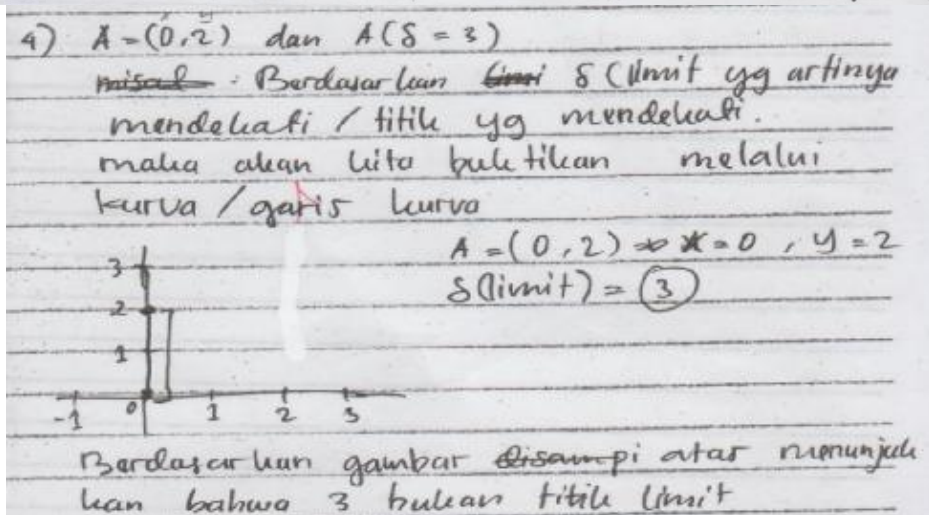 4) A = (0,2) dan A(δ = 3)
misal : Berdasarkan limi δ (limit yg artinya
mendekati / titik yg mendekati.
maka akan kita buktikan melalui
kurva / garis kurva
A = (0,2) x = 0 , y = 2
δ(limit) = 3
3
2
1
-1 0 1 2 3
Berdasarkan gambar disampi atas menunjuk
kan bahwa 3 bukan titik limit